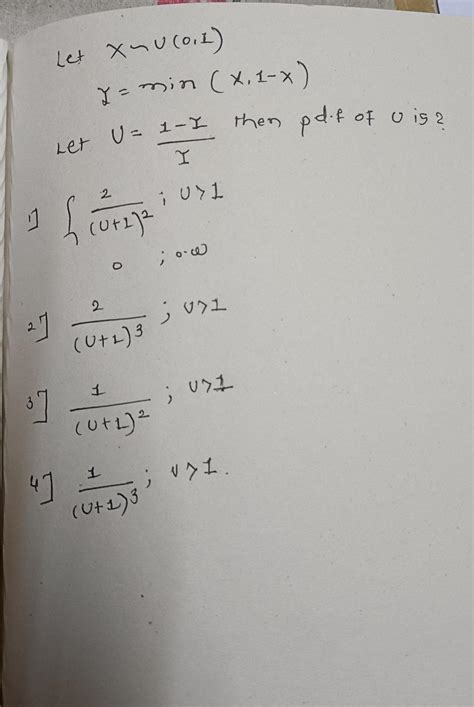 Let X ~ U(0,1)
Y = min (X, 1-X)
Let U = (1-Y)/Y then pd.f of U is?
1] { 2/(U+1)^2 ; U>1
0 ; o.w
2] 2/(U+1)^3 ; U>1
3] 1/(U+1)^2 ; U>1
4] 1/(U+1)^3 ; U>1.